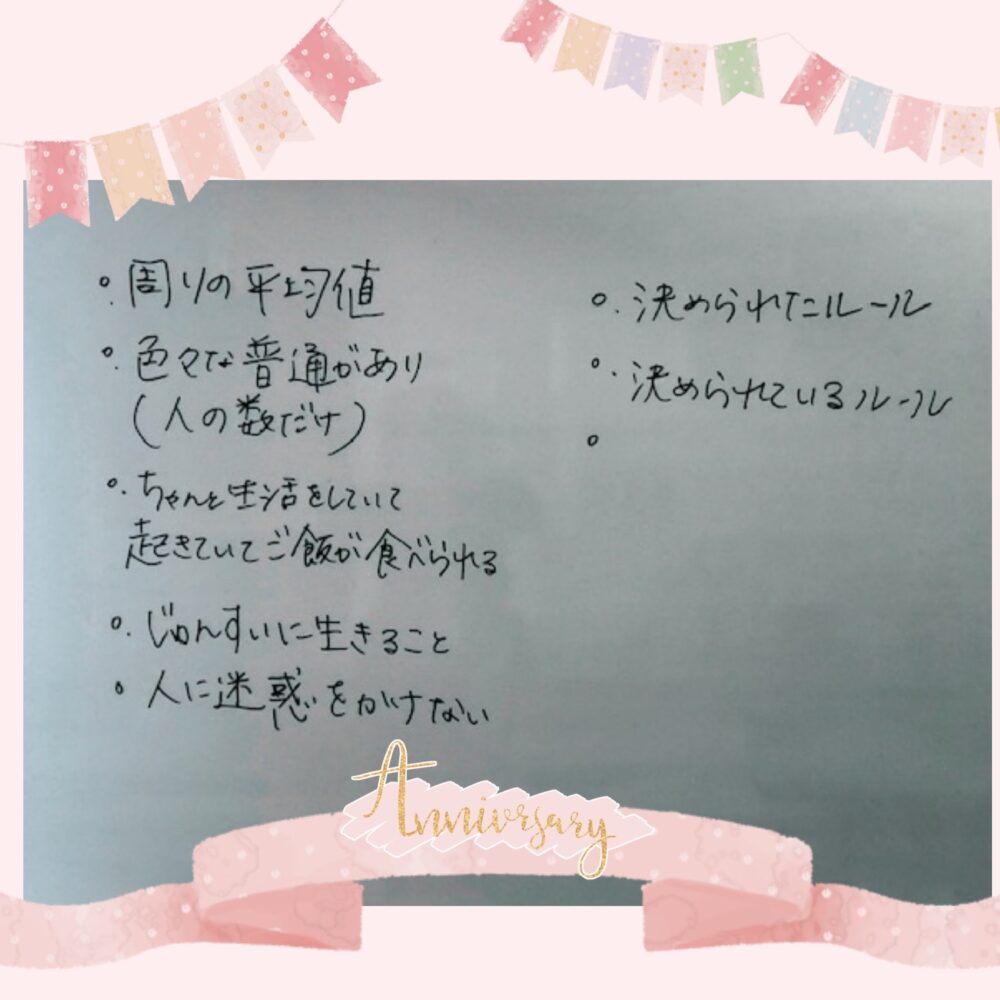 。周りの平均値
。色々な普通があり
(人の数だけ)
。ちゃんと生活をしていて
起きていてご飯が食べられる
。じゅんすいに生きること
。人に迷惑をがけない
。決められたルール
。決められているルール
。
Anniversary